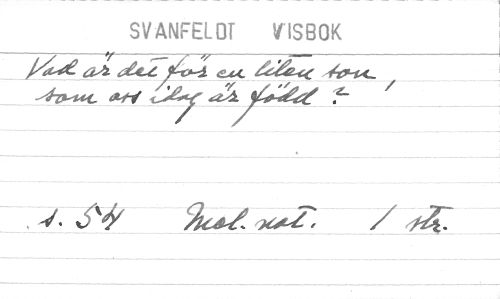 SVANFELDT VISBOK
Vad är det för en liten son,
som oss idag är född?
s. 54 Mel. not. 1 str.